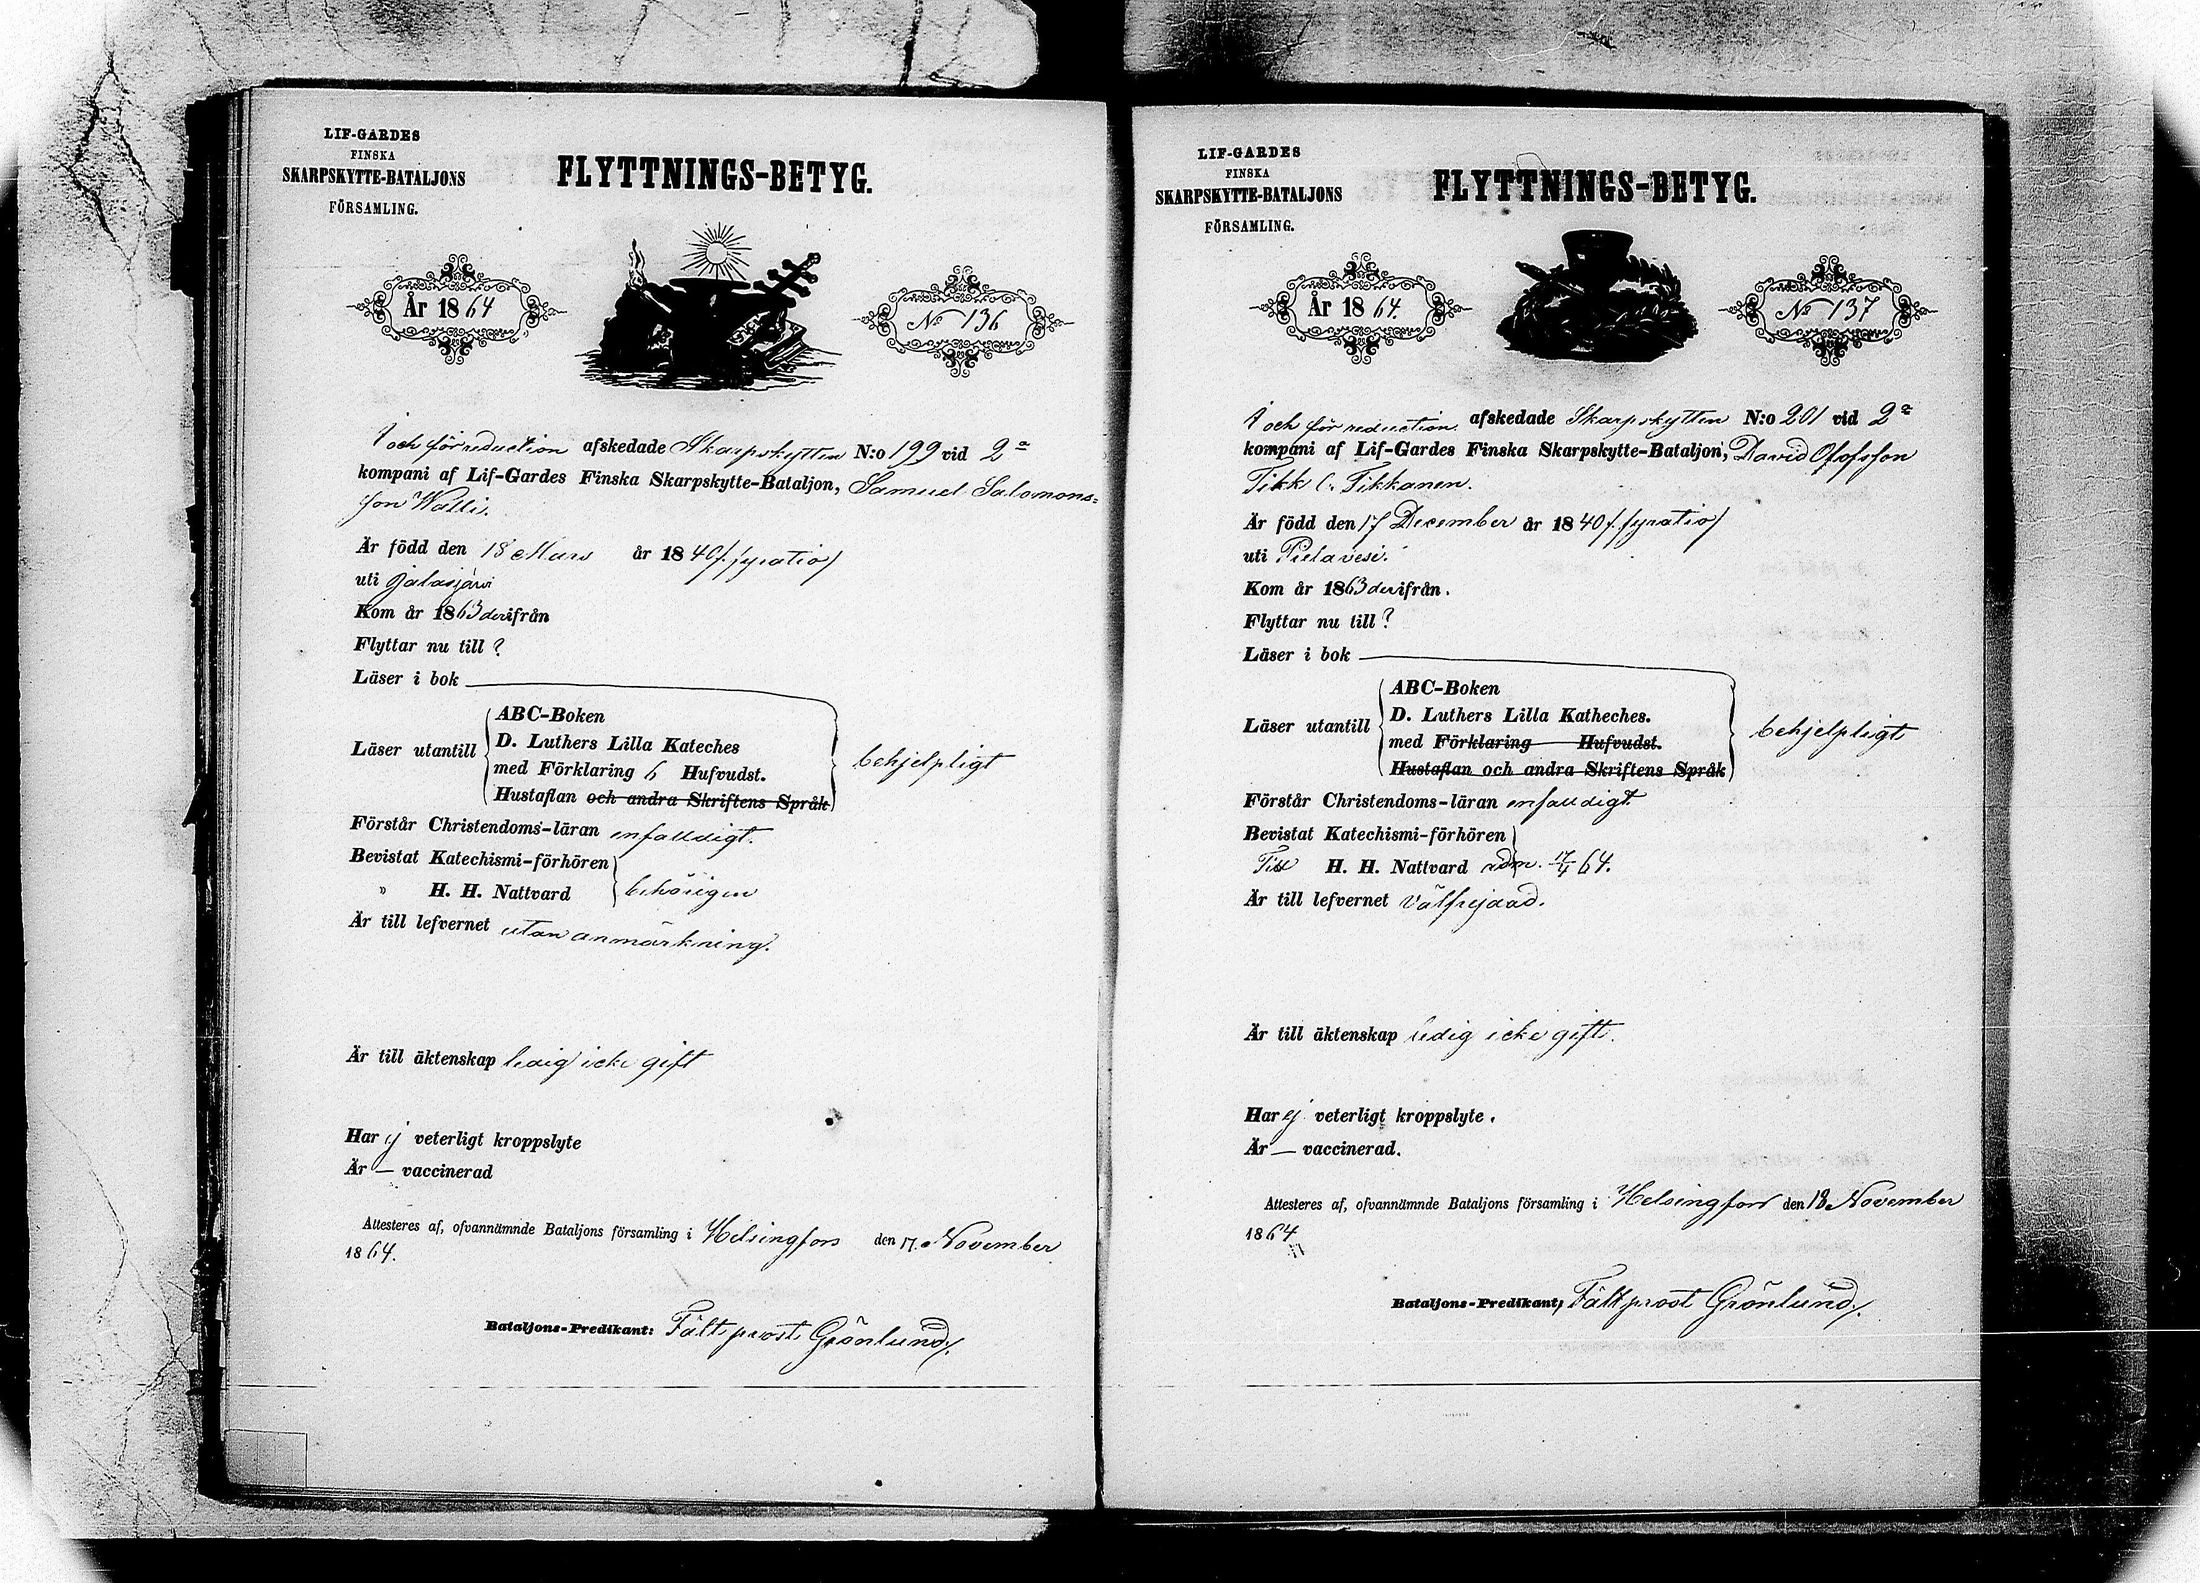 LIF-GARDES
FINSKA
SKARPSKYTTE-BATALJONS
FÖRSAMLING.
FLYTTNINGS-BETYG.
År 1864
No 136
I och för reduction afskedade Skarpskytten N:o 199 vid 2a
kompani af Lif-Gardes Finska Skarpskytte-Bataljon, Samuel Salomons=
son Walli.
Är född den 18 Mars år 1840 /:fyratio/
uti Jalasjärvi
Kom år 1863 derifrån
Flyttar nu till ?
Läser i bok
Läser utantill
ABC-Boken
D. Luthers Lilla Kateches
med Förklaring 6 Hufvudst.
Hustaflan och andra Skriftens Språk
behjelpligt
Förstår Christendoms-läran enfalldigt.
Bevistat Katechismi-förhören
" H. H. Nattvard behörigen
Är till lefvernet utan anmärkning.
Är till äktenskap ledig icke gift
Har ej veterligt kroppslyte
Är — vaccinerad
Attesteres af, ofvannämnde Bataljons församling i Helsingfors den 17. November
1864.
Bataljons-Predikant: Fältprost Grönlund/.
LIF-GARDES
FINSKA
SKARPSKYTTE-BATALJONS
FÖRSAMLING.
FLYTTNINGS-BETYG.
År 1864.
No 137
I och för reduction afskedade Skarpskytten N:o 201 vid 2a
kompani af Lif-Gardes Finska Skarpskytte-Bataljon, David Olofsson
Tikk l. Tikkanen.
Är född den 17 December år 1840 /:fyratio/
uti Pielavesi.
Kom år 1863 derifrån.
Flyttar nu till ?
Läser i bok
Läser utantill
ABC-Boken
D. Luthers Lilla Katheches.
med Förklaring Hufvudst.
Hustaflan och andra Skriftens Språk
behjelpligt
Förstår Christendoms-läran enfalldigt.
Bevistat Katechismi-förhören
Till H. H. Nattvard adm. 17/4 64.
Är till lefvernet välfrejdad.
Är till äktenskap ledig icke gift.
Har ej veterligt kroppslyte.
Är — vaccinerad.
Attesteres af, ofvannämnde Bataljons församling i Helsingfors den 18 November
1864
Bataljons-Predikant, Fältprost Grönlund/.